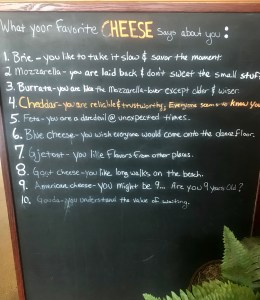 What your Favorite CHEESE Says about you:
1. Brie - you like to take it slow & savor the moment.
2 Mozzarella - you are laid back & don't sweat the small stuff.
3. Burrata - you are like the Mozzarella-lover except older & wiser.
4. Cheddar - you are reliable & trustworthy, Everyone seems to know you
5. Feta - you are a daredevil @ unexpected times.
6. Blue cheese - you wish everyone would come onto the dance floor.
7. Gjetost - you like flavors from other places.
8. Goat cheese - you like long walks on the beach.
9. American cheese - you might be 9... Are you 9 years old?
10. Gouda - you understand the value of waiting.